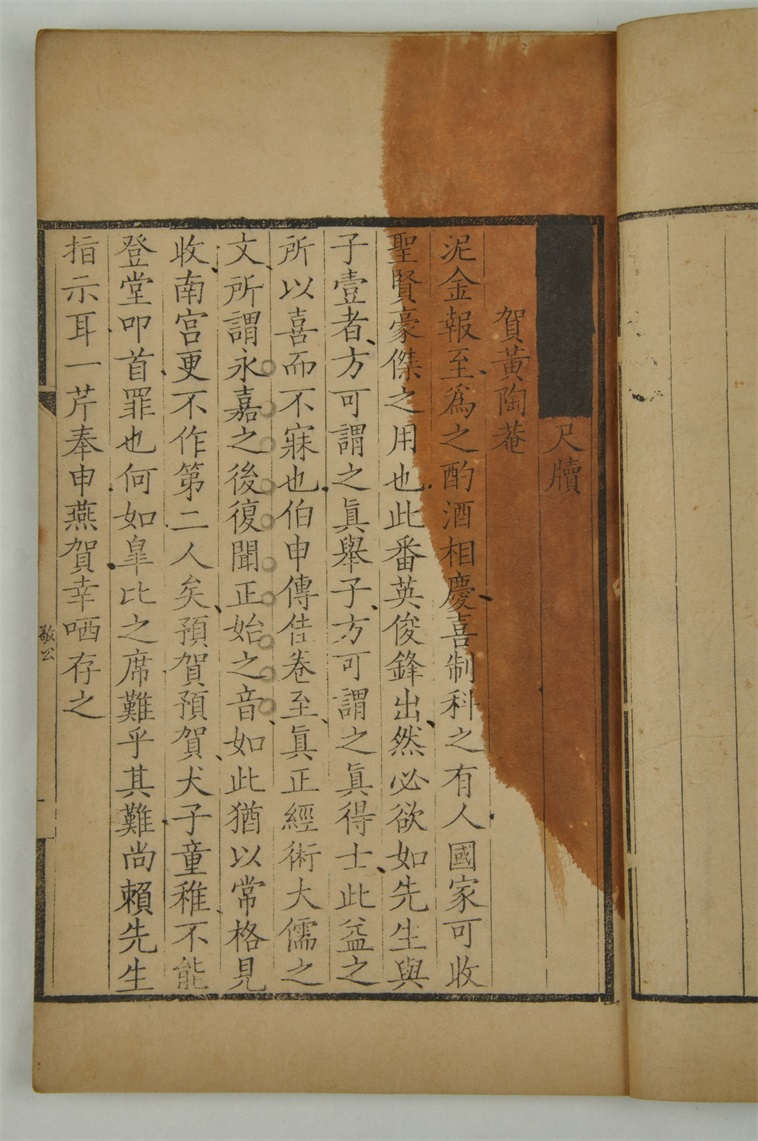 尺牘
賀黃陶菴
泥金報至爲之酌酒相慶喜制科之有人國家可收
聖賢豪傑之用也此番英俊鋒出然必欲如先生與
子壹者方可謂之眞舉子方可謂之眞得士此益之
所以喜而不寐也伯申傳佳卷至眞正經術大儒之
文所謂永嘉之後復聞正始之音如此猶以常格見
收南宮更不作第二人矣預賀預賀犬子童稚不能
登堂叩首罪也何如皐比之席難乎其難尚賴先生
指示耳一芹奉申燕賀幸哂存之
敬公